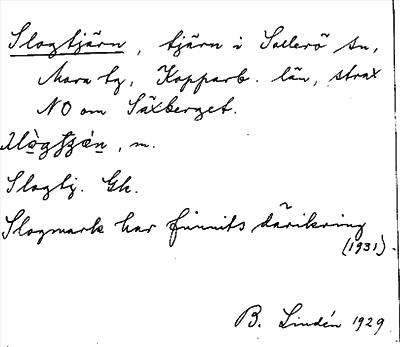 Slogtjärn, tjärn i Sollerö sn,
Mora tg, Kopparb. län, strax
NO om Säxberget.
, m.
Slogtj. Gk.
Slogmark har funnits däríkring
(1931).
B. Lindén 1929